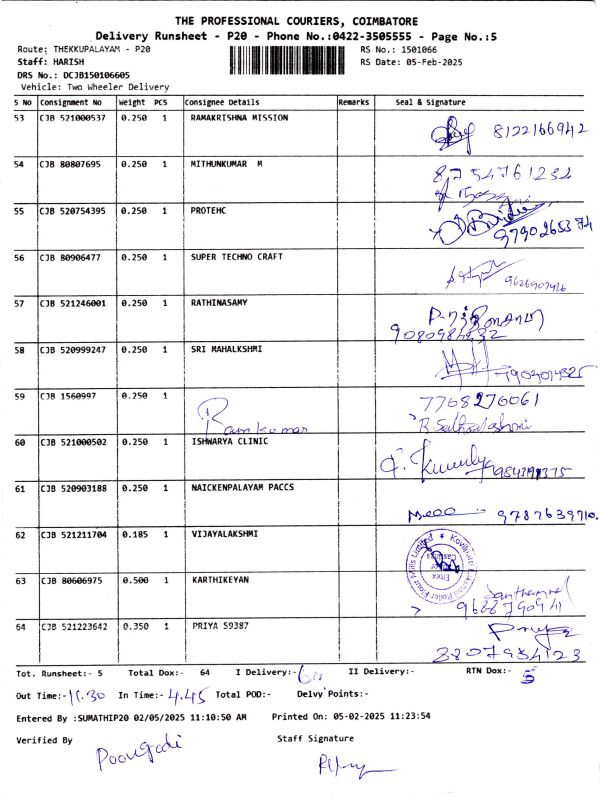 THE PROFESSIONAL COURIERS, COIMBATORE
Delivery Runsheet - P20 - Phone No.:0422-3505555 - Page No.:5
Route: THEKKUPALAYAM - P20 RS No.: 1501066
Staff: HARISH RS Date: 05-Feb-2025
DRS No.: DCJB150106605
Vehicle: Two Wheeler Delivery
S No Consignment No Weight PCS Consignee Details Remarks Seal & Signature
53 CJB 521000537 0.250 1 RAMAKRISHNA MISSION 8122166942
54 CJB 80807695 0.250 1 MITHUNKUMAR M 8754761232
55 CJB 520754395 0.250 1 PROTEHC
9790265374
56 CJB 80906477 0.250 1 SUPER TECHNO CRAFT
57 CJB 521246001 0.250 1 RATHINASAMY
58 CJB 520999247 0.250 1 SRI MAHALKSHMI
59 CJB 1560997 0.250 1 7768270061
Ramkumar
60 CJB 521000502 0.250 1 ISHWARYA CLINIC
61 CJB 520903188 0.250 1 NAICKENPALAYAM PACCS
9787639710.
62 CJB 521211704 0.185 1 VIJAYALAKSHMI
63 CJB 80606975 0.500 1 KARTHIKEYAN
64 CJB 521223642 0.350 1 PRIYA 59387 Priya
Tot. Runsheet:- 5 Total Dox:- 64 I Delivery:- II Delivery:- RTN Dox:- 5
Out Time:- 11.30 In Time:- 4.45 Total POD:- Delvy Points:-
Entered By :SUMATHIP20 02/05/2025 11:10:50 AM Printed On: 05-02-2025 11:23:54
Verified By Staff Signature
Poongodi